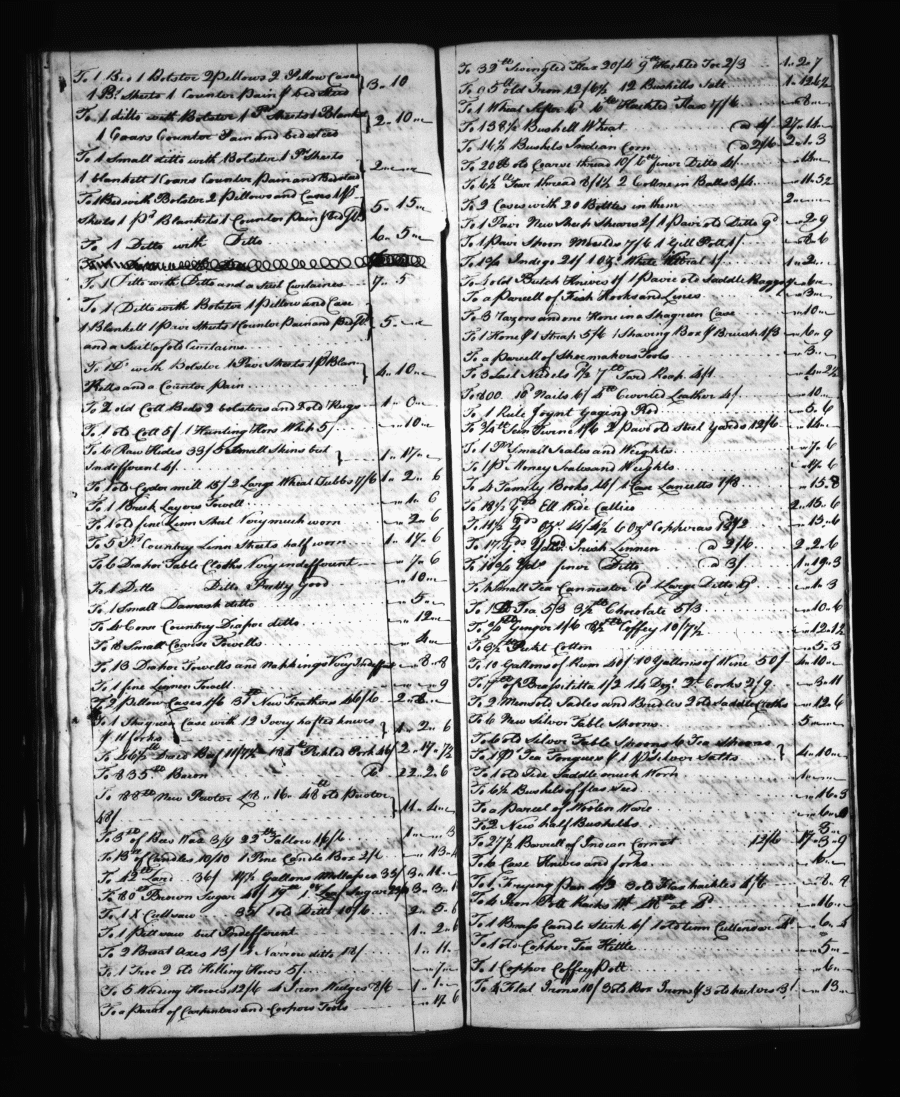 To 1 Bed 1 Bolster 2 Pillows 2 Pillow Cases
1 Pr. Sheets 1 Counter pain & bedsteed } 3 " 10
To 1 ditto with Bolster 1 Pr Sheets 1 Blanket
1 Coars Counter Pain and bedsteed } 2 " 10 "
To 1 Small ditto with Bolster 1 Pr Sheets
1 blankett 1 Coars Counter Pain and Bedstead } 2 " "
To 1 Bed with Bolster 2 Pillows and Cases 1 Pr
Sheets 1 Pr Blankets 1 Counter Pain & bed } 5 " 15 "
To 1 Ditto with Ditto 6 " 5 "
To 1 Ditto with Ditto and a Suit Curtaines 7 " 5
To 1 Ditto with Bolster 1 Pillow and Case
1 Blankell 1 Pair Sheets 1 Counter Pain and Bed
and a Suit of old Curtains } 5 " "
To 1 Do with Bolster 1 Pair Sheets 1 Pr Blan
ketts and a Counter pain } 4 " 10 "
To 2 old Cott Beds 2 bolsters and 2 old Rugs 1 " 0 "
To 1 old Cott 5/ 1 Hunting Hors Whip 5/ " 10 "
To 6 Raw Hides 33/ 5 Small Skins but
Indefferent 4/ } 1 " 17 "
To 1 old Cyder mill 15/ 2 Large Wheat Tubbs 7/6 1 " 2 " 6
To 1 Brick Layers Towell " 1 " 6
To 1 old fine Linn Sheet Very much worn " 2 " 6
To 5 Prs Country Linn Sheets half worn 1 " 17 " 6
To 6 Diaper Table Cloths Very indefferent " 7 " 6
To 1 Ditto Ditto Pretty good " 10 "
To 1 Small Damask ditto " 5 "
To 4 Cors Country Diaper ditto " 12 "
To 8 Small Coarse Towells " 4 "
To 13 Diaper Towells and Napkings Very Indeffer " 8 " 8
To 1 fine Linnen Towell " " 9
To 2 Pillow Cases 1/6 31 lb New Feathers 46/6 2 " 8 "
To 1 Shagreen Case with 12 Ivory hafted knives
& 11 forks } 1 " 2 " 6
To 46½ lb Dried Beef 11/7½ 184 lb Pickled Pork 46/ 2 " 17 " 7½
To 835 lb Bacon 22 " 2 " 6
To 88 lb New Pewter 18 " 16 " 48 lb old Pewter
48/ } 11 " 4 "
To 3 lb of Bees Wax 3/9 22 lb Tallow 16/6 1 " " 3
To 13 lb of Candles 10/10 1 Pine Candle Box 2/6 " 13 " 4
To 42 lb Lard 36/ 17½ Gallons Mollasses 35/ 3 " 11 "
To 80 lb Brown Sugar 40/ Loaf Sugar 3 " 3 "
To 1 X Cutt saw 35/ 1 old Ditto 10/6 2 " 5 " 6
To 1 Pitt saw but Indefferent 1 " 2 " 6
To 2 Broad Axes 13/ 4 Narrow ditto 18/ 1 " 11 "
To 1 Froe 2 old Hilling Howes 5/ " 7 "
To 5 Weeding Howes 12/6 4 Iron Wedges 8/6 1 " 1 "
To a Parcel of Carpenters and Coopers Tools " 17 " 6
To 32 lb Swingled Flax 20/4 9 lb Hackled Tow 2/3 1 " 2 " 7
To 95 lb old Iron 12/6½ 12 Bushills Salt 1 " 12 6½
To 1 Wheat Sifter 6d 6 lb Hackled Flax 7/6 " 8 "
To 138½ Bushell Wheat @ 4/ 27 " 14 "
To 16½ Bushels Indian Corn @ 2/6 2 " 1 " 3
To 20 Bolts Coarse thread 10/ 6 oz finer Ditto 4/ " 14 "
To 6½ lb Tow thread 8/1½ 2 lb Cotten in Balls 3/4 " 11 " 5½
To 2 Cases with 20 Bottles in them 2 " "
To 1 Pair New Sheep Shears 2/ 1 pair old Ditto 9d " 2 " 9
To 1 pair Spoon Moulds 7/6 1 Gill Pott 1/ " 8 " 6
To 1 lb Indigo 21/ 1 oz White Vitrial 1/ 1 " 2 "
To 4 old Butch Knives 4/ 1 Pair old Saddle Baggs " 6 "
To a parcell of Fish Hooks and Lines " 3 "
To 3 razors and one Hone in a Shagreen Case " 10 "
To 1 Hone & 1 Strap 5/6 1 Shaving Box & Brush 1/3 " 6 " 9
To a parcell of Shoemakers Tools " 3 "
To 3 Sail Needels 7½ 7 lb Tard Roap 4/1 " 4 " 2½
To 800 10d Nails 6/ 4 lb Covored Leather 4/ " 10 "
To 1 Rule Joynt Gageing Rod " 5 " 6
To ¾ lb Sein Twine 1/6 2 Pair old Steel Yards 12/6 " 14 "
To 1 Pr Small Scales and Weights " 7 " 6
To 1 Pr Money Scales and Weights " 17 " 6
To 4 Family Books 14/ 1 Case Lancetts 1/8 " 15 " 8
To 18½ Yds Ell Wide Callico 2 " 15 " 6
To 11½ Yds Ozg 14/4½ 6 Oz Copperas 1½ " 15 " 6
To 17 Yds Yd wd Irish Linnen @ 2/6 2 " 2 " 6
To 10 Yds finer Ditto @ 3/ 1 " 19 " 3
To 4 Small Tea Cannester 6d 1 Large Ditto " 1 " 3
To 1 lb Tea 5/3 3½ lb Chocolate 5/3 " 10 " 6
To Ginger 1/6 8½ lb Coffey 10/7½ " 12 " 1½
To 3½ lb Pickt Cotton " 5 " 3
To 10 Gallons of Rum 40/ 10 Gallons of Wine 50/ 4 " 10 "
To 7 lb of Brass Kittle 1/2 14 Doz Corks 2/9 " 3 " 11
To 2 Mens old Sadles and Bridles 2 old Saddle Cloths " 12 " 6
To 6 New Silver Table Spoons 5 " "
To 6 old Silver Table Spoons 6 Tea Spoons
To 1 Pr Tea Tongues & 1 Pr Silver Salts } 4 " 10 "
To 1 old Side Saddle much Worn 1 " "
To 6½ Bushels of flax Seed " 16 " 3
To a Parcel of Woolen Ware " 6 " 8
To 2 New half Bushells " 3 "
To 27½ Barrell of Indian Corn at 12/6 17 " 3 " 9
To 6 Case Knives and forks " 6 "
To 1 Frying Pan 4/2 3 old Flax hackles 4/6 " 8 " 8
To 4 Iron Pott Racks Wt 48 lb at 4d " 16 "
To 1 Brass Candle Stick 6/ 1 old tinn Cullender 4d " 6 " 4
To 1 old Copper Tea Kittle " 5 "
To 1 Copper Coffey Pott " 6 "
To 4 Flat Irons 10/ 3 old Box Irons & 3 old heaters 3/ " 13 "